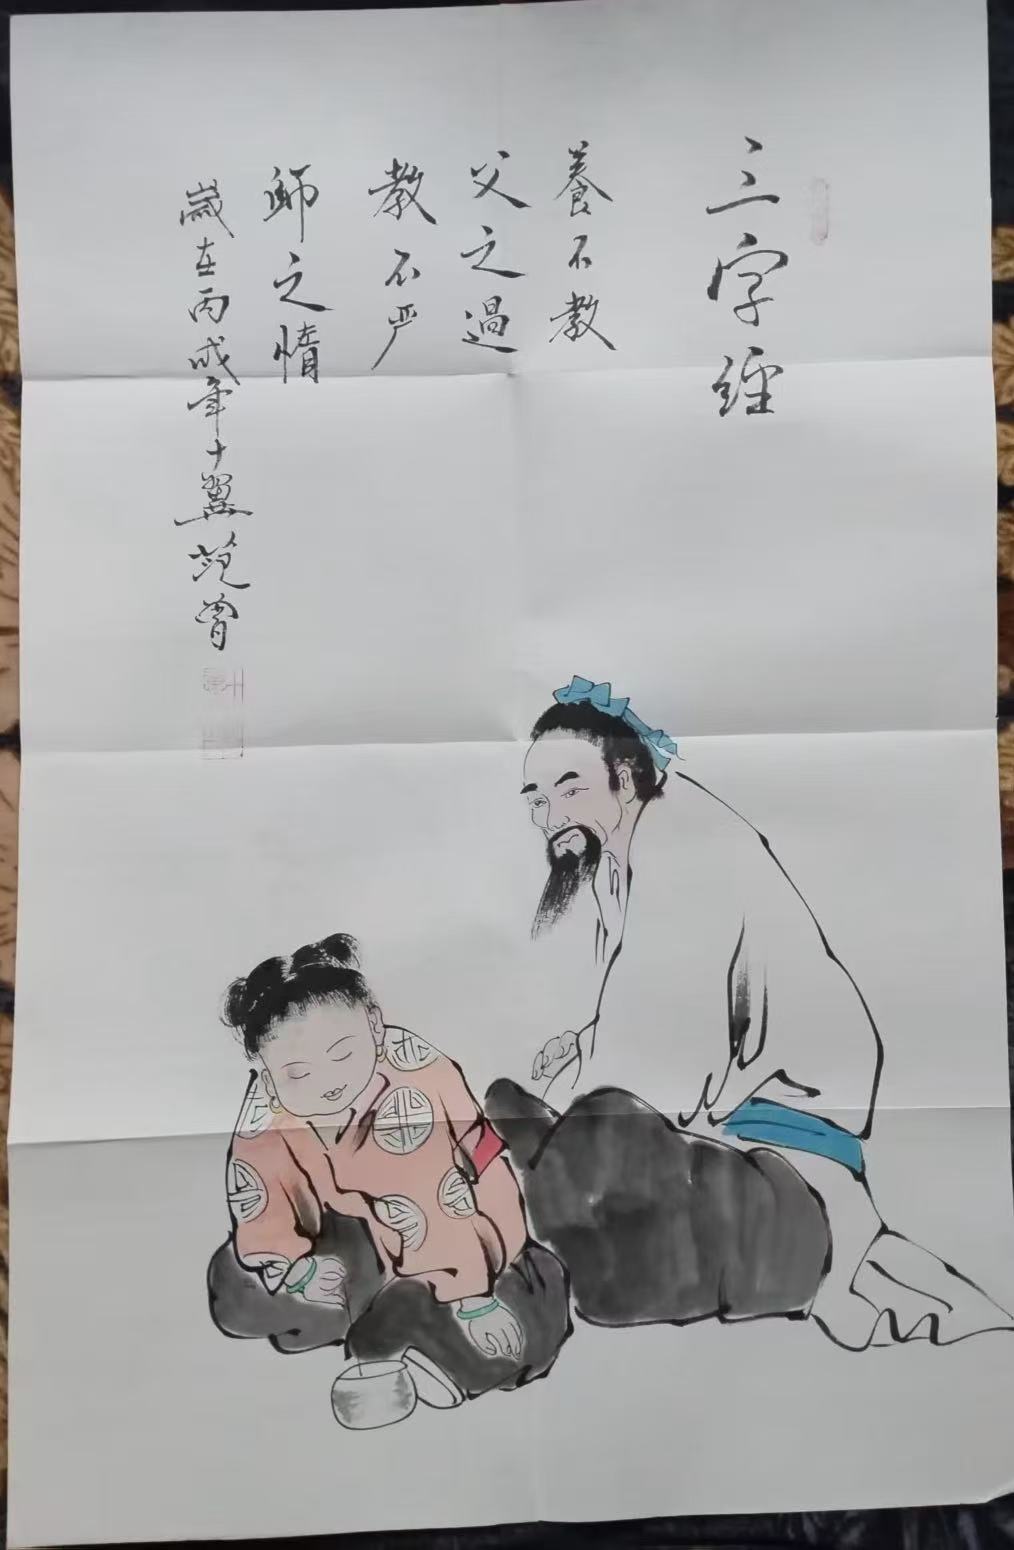 三字经
養不教
父之過
教不严
師之惰
歲在丙戌年十翼范曾